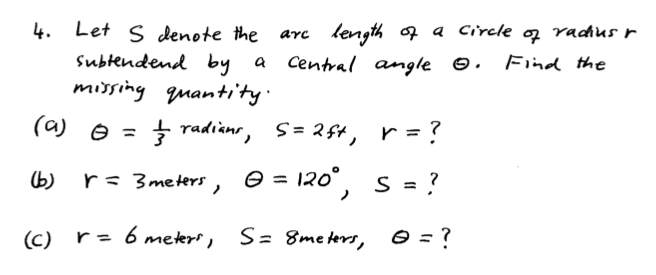 4. Let S denote the arc length of a circle of radius r
subtendend by a central angle θ. Find the
missing quantity.
(a) θ = 1/3 radians, S = 2ft, r = ?
(b) r = 3 meters, θ = 120°, S = ?
(c) r = 6 meters, S = 8meters, θ = ?